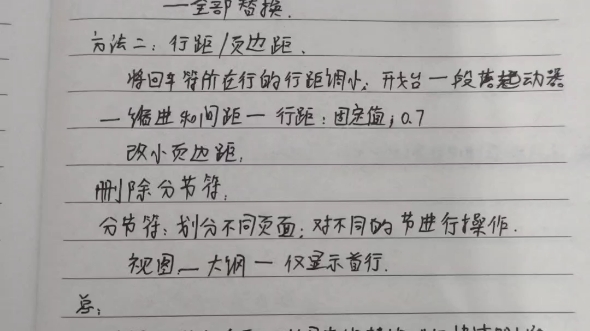 一全部替换.
方法二：行距/页边距.
将回车符所在行的行距调小：开始一段落起动器
一缩进和间距一行距：固定值；0.7
改小页边距.
删除分节符：
分节符：划分不同页面；对不同的节进行操作.
视图一大纲一仅显示首行.
总：